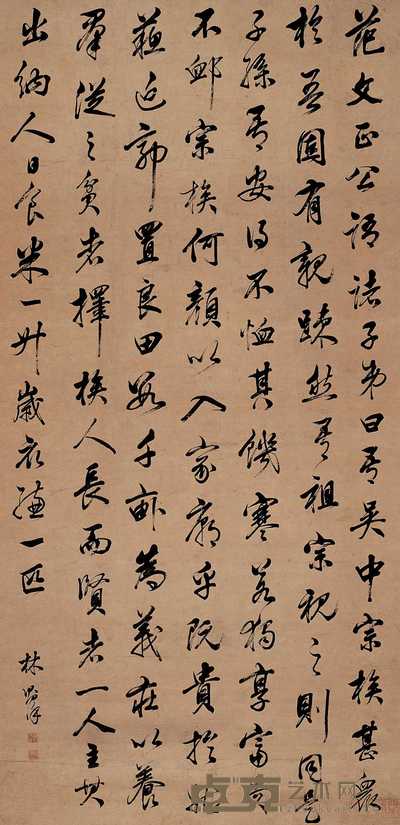 范文正公語諸子弟曰吾吳中宗族甚衆
於吾固有親踈然吾祖宗視之則同是
子孫吾安得不恤其饑寒若獨享富貴
不卹宗族何顏以入家廟乎既貴於姑
蘇近郭置良田數千畝為義莊以養
羣從之貧者擇族人長而賢者一人主其
出納人日食米一升歲衣縑一匹
林
卓克艺术网